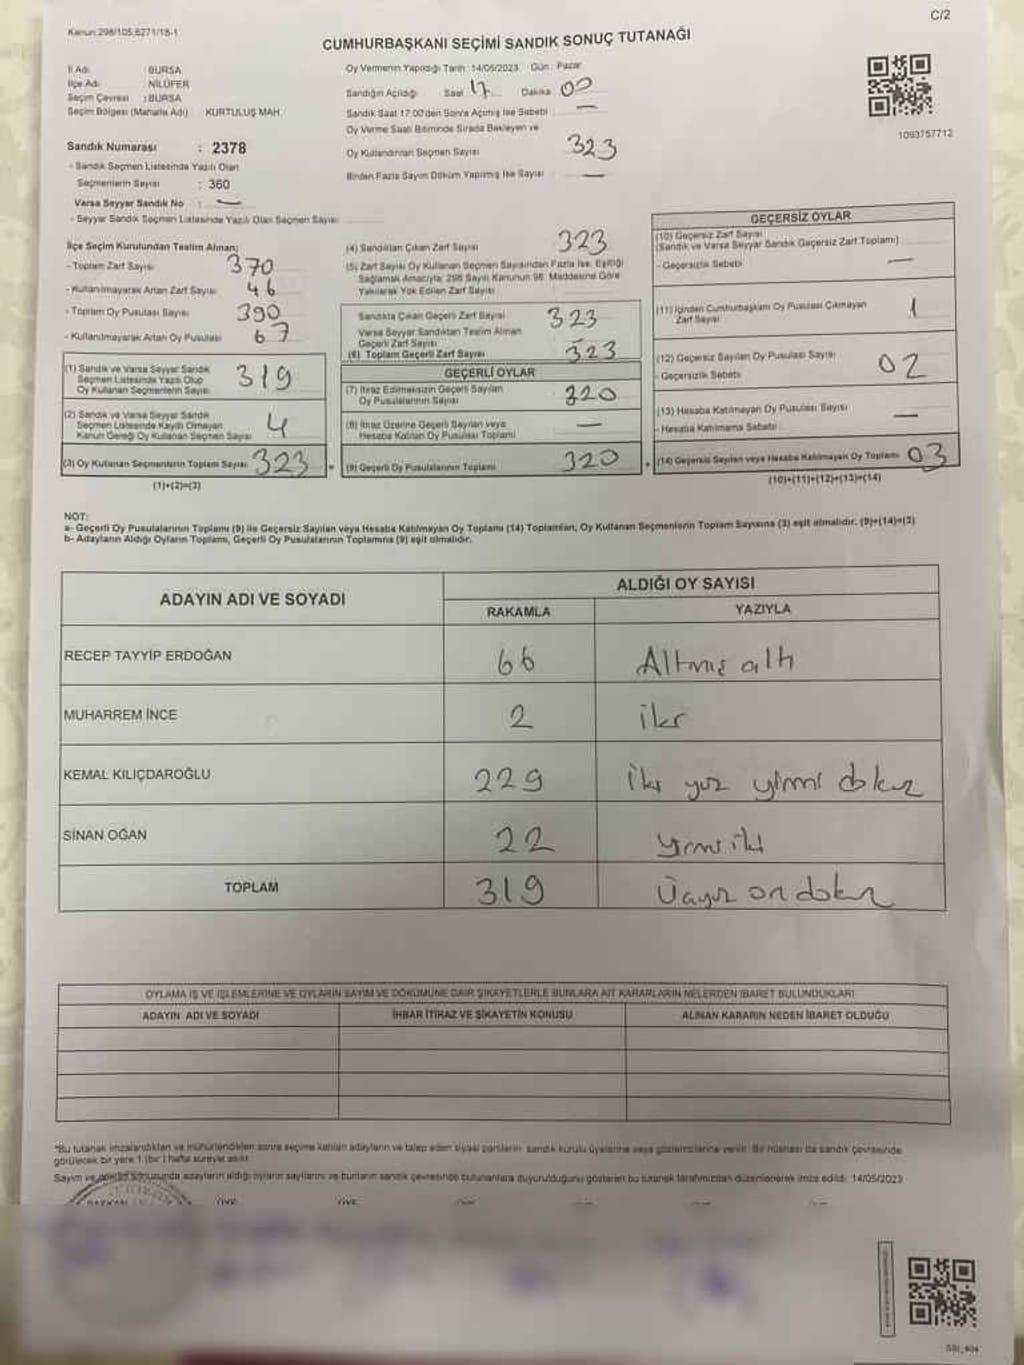 C/2
Kanun:298/105,6271/18-1
CUMHURBAŞKANI SEÇİMİ SANDIK SONUÇ TUTANAĞI
İl Adı : BURSA
İlçe Adı : NİLÜFER
Seçim Çevresi : BURSA
Seçim Bölgesi (Mahalle Adı) : KURTULUŞ MAH.
Oy Vermenin Yapıldığı Tarih: 14/05/2023 Gün: Pazar
Sandığın Açıldığı Saat 17 Dakika 00
Sandık Saat 17.00'den Sonra Açılmış İse Sebebi —
Oy Verme Saati Bitiminde Sırada Bekleyen ve
Oy Kullandırılan Seçmen Sayısı 323
Birden Fazla Sayım Döküm Yapılmış İse Sayısı —
1093757712
Sandık Numarası : 2378
- Sandık Seçmen Listesinde Yazılı Olan
Seçmenlerin Sayısı : 360
Varsa Seyyar Sandık No : —
- Seyyar Sandık Seçmen Listesinde Yazılı Olan Seçmen Sayısı
İlçe Seçim Kurulundan Teslim Alınan;
- Toplam Zarf Sayısı 370
- Kullanılmayarak Artan Zarf Sayısı 46
- Toplam Oy Pusulası Sayısı 390
- Kullanılmayarak Artan Oy Pusulası 67
(1) Sandık ve Varsa Seyyar Sandık
Seçmen Listesinde Yazılı Olup
Oy Kullanan Seçmenlerin Sayısı 319
(2) Sandık ve Varsa Seyyar Sandık
Seçmen Listesinde Kayıtlı Olmayan
Kanun Gereği Oy Kullanan Seçmen Sayısı 4
(3) Oy Kullanan Seçmenlerin Toplam Sayısı 323
(1)+(2)=(3)
(4) Sandıktan Çıkan Zarf Sayısı 323
(5) Zarf Sayısı Oy Kullanan Seçmen Sayısından Fazla İse, Eşitliği
Sağlamak Amacıyla; 298 Sayılı Kanunun 98. Maddesine Göre
Yakılarak Yok Edilen Zarf Sayısı
Sandıkta Çıkan Geçerli Zarf Sayısı 323
Varsa Seyyar Sandıktan Teslim Alınan
Geçerli Zarf Sayısı
(6) Toplam Geçerli Zarf Sayısı 323
GEÇERLİ OYLAR
(7) İtiraz Edilmeksizin Geçerli Sayılan
Oy Pusulalarının Sayısı 320
(8) İtiraz Üzerine Geçerli Sayılan veya
Hesaba Katılan Oy Pusulası Toplamı —
(9) Geçerli Oy Pusulalarının Toplamı 320
GEÇERSİZ OYLAR
(10) Geçersiz Zarf Sayısı
(Sandık ve Varsa Seyyar Sandık Geçersiz Zarf Toplamı)
- Geçersizlik Sebebi —
(11) İçinden Cumhurbaşkanı Oy Pusulası Çıkmayan
Zarf Sayısı 1
(12) Geçersiz Sayılan Oy Pusulası Sayısı
- Geçersizlik Sebebi 02
(13) Hesaba Katılmayan Oy Pusulası Sayısı
- Hesaba Katılmama Sebebi —
(14) Geçersiz Sayılan veya Hesaba Katılmayan Oy Toplamı 03
(10)+(11)+(12)+(13)=(14)
NOT:
a- Geçerli Oy Pusulalarının Toplamı (9) ile Geçersiz Sayılan veya Hesaba Katılmayan Oy Toplamı (14) Toplamları, Oy Kullanan Seçmenlerin Toplam Sayısına (3) eşit olmalıdır. (9)+(14)=(3)
b- Adayların Aldığı Oyların Toplamı, Geçerli Oy Pusulalarının Toplamına (9) eşit olmalıdır.
ADAYIN ADI VE SOYADI
ALDIĞI OY SAYISI
RAKAMLA YAZIYLA
RECEP TAYYİP ERDOĞAN 66 Altmış altı
MUHARREM İNCE 2 iki
KEMAL KILIÇDAROĞLU 229 iki yüz yirmi dokuz
SİNAN OĞAN 22 yirmi iki
TOPLAM 319 Üçyüz on dokuz
OYLAMA İŞ VE İŞLEMLERİNE VE OYLARIN SAYIM VE DÖKÜMÜNE DAİR ŞİKAYETLERLE BUNLARA AİT KARARLARIN NELERDEN İBARET BULUNDUKLARI
ADAYIN ADI VE SOYADI İHBAR İTİRAZ VE ŞİKAYETİN KONUSU ALINAN KARARIN NEDEN İBARET OLDUĞU
*Bu tutanak imzalandıktan ve mühürlendikten sonra seçime katılan adayların ve talep eden siyasi partilerin sandık kurulu üyelerine veya gözlemcilerine verilir. Bir nüshası da sandık çevresinde
görülecek bir yere 1 (bir) hafta süreyle asılır.
Sayım ve döküm sonucunda adayların aldığı oyların sayılarını ve bunların sandık çevresinde bulunanlara duyurulduğunu gösteren bu tutanak tarafımızdan düzenlenerek imza edildi. 14/05/2023